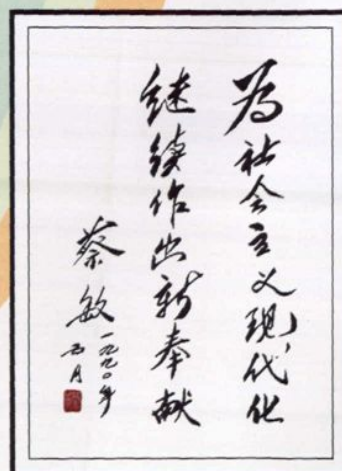 为社会主义现代化
继续作出新奉献
蔡敏
一九九〇年
五月